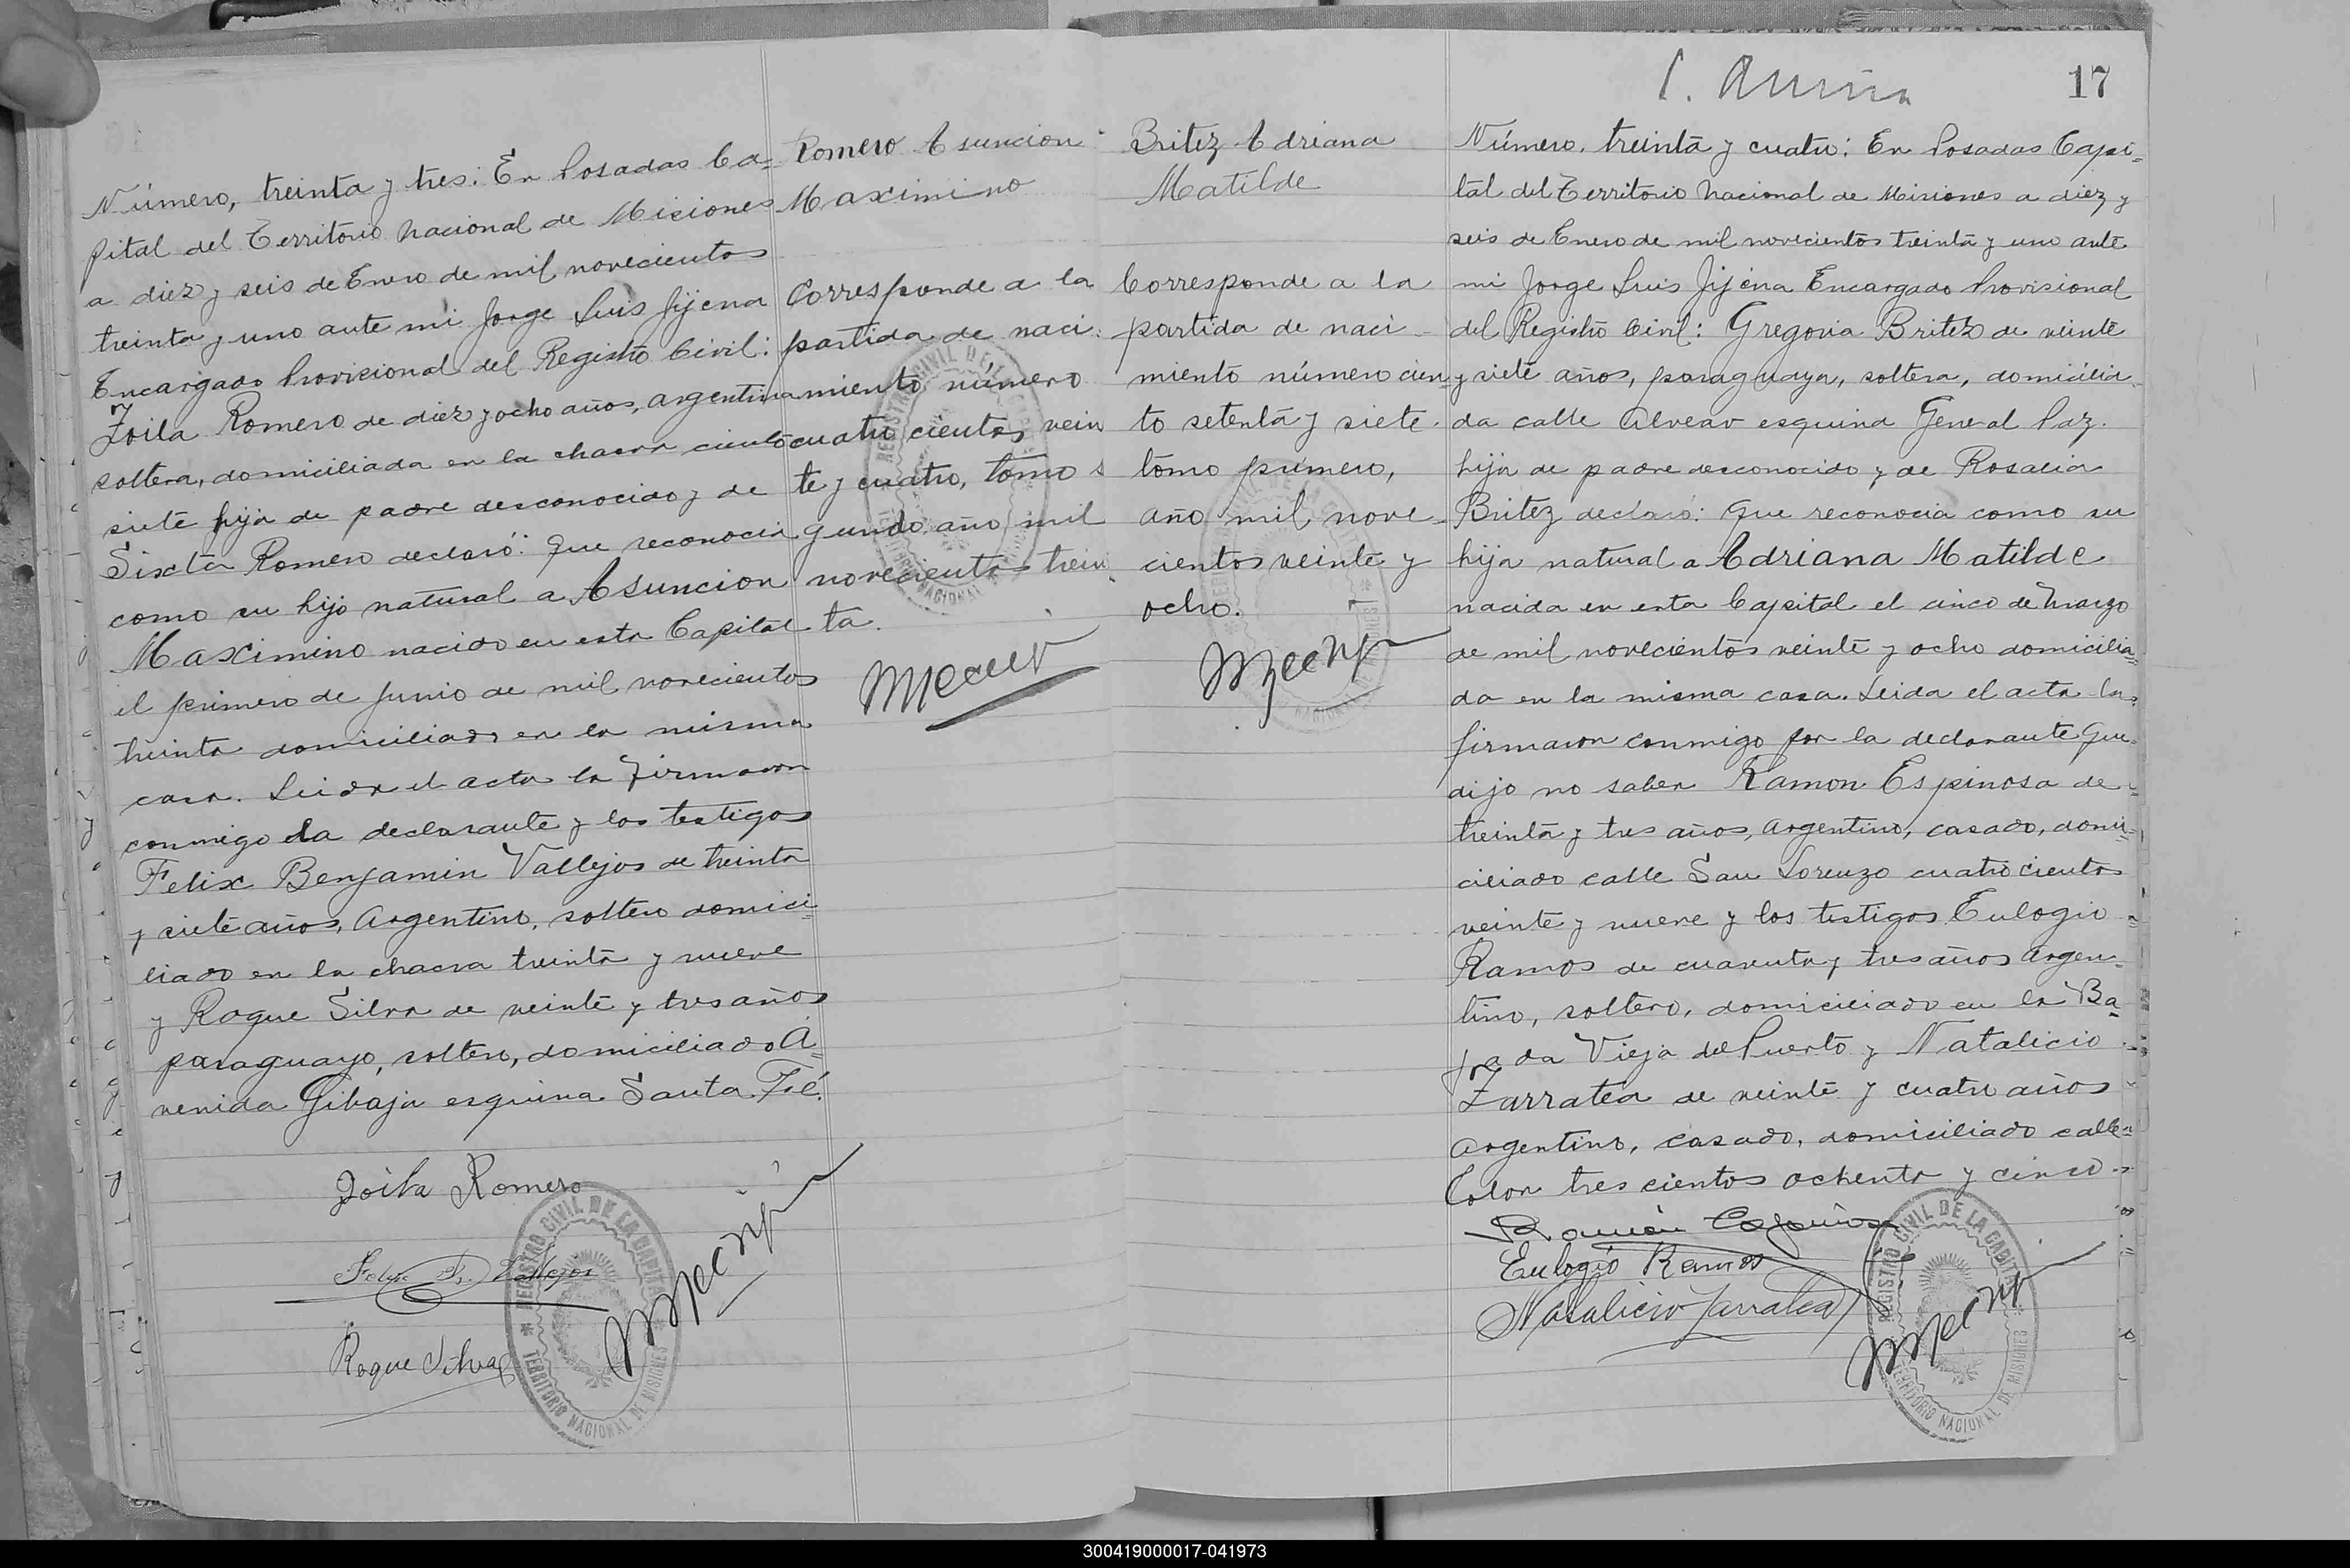 Número, treinta y tres: En Posadas Ca=
pital del Territorio Nacional de Misiones
a diez y seis de Enero de mil novecientos
treinta y uno ante mi Jorge Luis Jijena
Encargado Provisional del Registro Civil:
Zoila Romero de diez y ocho años, argentina
soltera, domiciliada en la chacra ciento
siete hija de padre desconocido y de
Sixta Romero declaró: Que reconocia
como su hijo natural a Asuncion
Maximino nacido en esta Capital
el primero de Junio de mil novecientos
treinta domiciliado en la misma
casa. Leida el acta la firmaron
conmigo la declarante y los testigos
Felix Benjamin Vallejos de treinta
y siete años, Argentino, soltero domici=
liado en la chacra treinta y nueve
y Roque Silva de veinte y tres años
paraguayo, soltero, domiciliado A=
venida Gibaja esquina Santa Fé.
Zoila Romero
Felix B. Vallejos
Roque Silva
REGISTRO CIVIL DE LA CAPITAL
TERRITORIO NACIONAL DE MISIONES
Romero Asuncion
Maximino
Corresponde a la
partida de naci
miento número
cuatro cientos vein
te y cuatro, tomo s
gundo año mil
novecientos trein
ta.
Britez Adriana
Matilde
Corresponde a la
partida de naci-
miento número cien
to setenta y siete
tomo primero,
año mil nove-
cientos veinte y
ocho.
17
Número, treinta y cuatro: En Posadas Capi=
tal del Territorio Nacional de Misiones a diez y
seis de Enero de mil novecientos treinta y uno ante
mi Jorge Luis Jijena Encargado Provisional
del Registro Civil: Gregoria Britez de veinte
y siete años, paraguaya, soltera, domicilia
da calle Alvear esquina General Paz.
hija de padre desconocido y de Rosalia
Britez declaró: Que reconocia como su
hija natural a Adriana Matilde
nacida en esta Capital el cinco de Marzo
de mil novecientos veinte y ocho domicilia=
da en la misma casa. Leida el acta la
firmaron conmigo por la declarante que
dijo no saber Ramon Espinosa de
treinta y tres años, Argentino, casado, domi=
ciliado calle San Lorenzo cuatro cientos
veinte y nueve y los testigos Eulogio
Ramos de cuarenta y tres años Argen=
tino, soltero, domiciliado en la Ba
jada Vieja del Puerto y Natalicio
Zarratea de veinte y cuatro años
Argentino, casado, domiciliado calle
Colon tres cientos ochenta y cinco
Ramón Espinosa
Eulogio Ramos
Natalicio Zarratea
REGISTRO CIVIL DE LA CAPITAL
TERRITORIO NACIONAL DE MISIONES
300419000017-041973